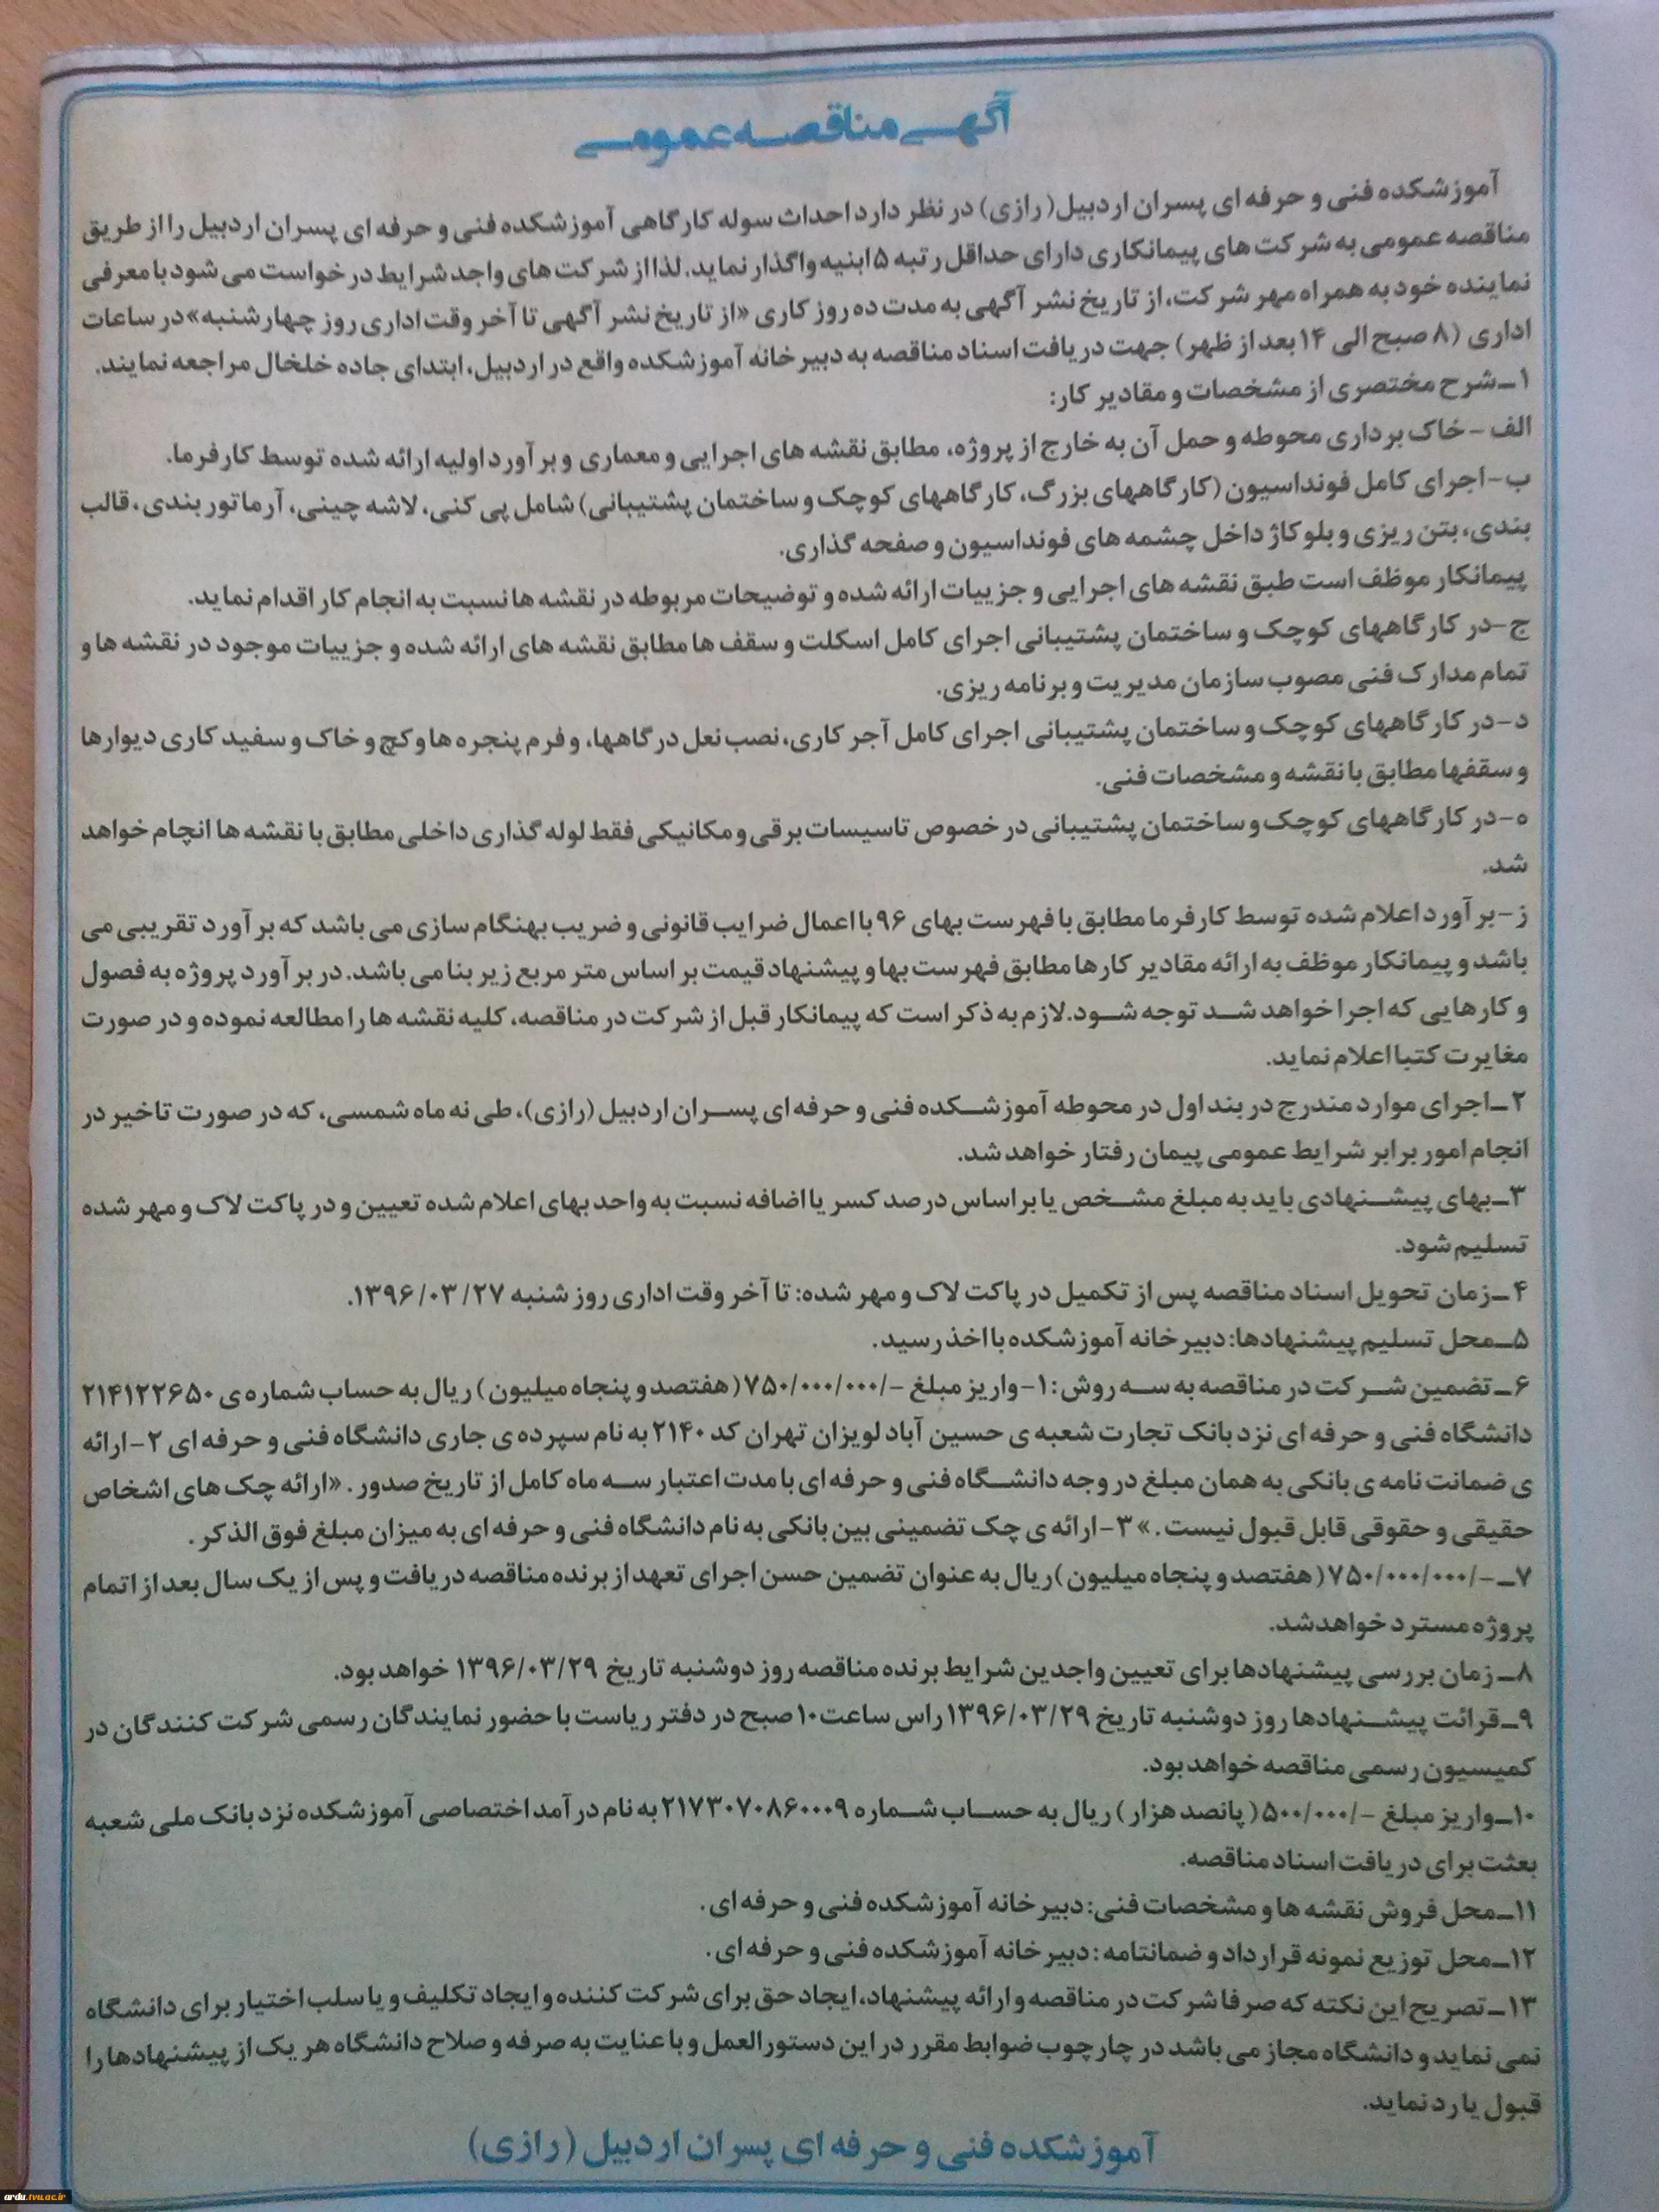 آگهی مناقصه عمومی
آموزشکده فنی و حرفه ای پسران اردبیل(رازی) در نظر دارد احداث سوله کارگاهی آموزشکده فنی و حرفه ای پسران اردبیل را از طریق
مناقصه عمومی به شرکت های پیمانکاری دارای حداقل رتبه ۵ ابنیه واگذار نماید. لذا از شرکت های واجد شرایط درخواست می شود با معرفی
نماینده خود به همراه مهر شرکت، از تاریخ نشر آگهی به مدت ده روز کاری «از تاریخ نشر آگهی تا آخر وقت اداری روز چهارشنبه» در ساعات
اداری (۸ صبح الی ۱۴ بعد از ظهر) جهت دریافت اسناد مناقصه به دبیرخانه آموزشکده واقع در اردبیل، ابتدای جاده خلخال مراجعه نمایند.
۱ـ شرح مختصری از مشخصات و مقادیر کار:
الف - خاک برداری محوطه و حمل آن به خارج از پروژه، مطابق نقشه های اجرایی و معماری و برآورد اولیه ارائه شده توسط کارفرما.
ب - اجرای کامل فونداسیون (کارگاههای بزرگ، کارگاههای کوچک و ساختمان پشتیبانی) شامل پی کنی، لاشه چینی، آرماتور بندی، قالب
بندی، بتن ریزی و بلوکاژ داخل چشمه های فونداسیون و صفحه گذاری.
پیمانکار موظف است طبق نقشه های اجرایی و جزییات ارائه شده و توضیحات مربوطه در نقشه ها نسبت به انجام کار اقدام نماید.
ج - در کارگاههای کوچک و ساختمان پشتیبانی اجرای کامل اسکلت و سقف ها مطابق نقشه های ارائه شده و جزییات موجود در نقشه ها و
تمام مدارک فنی مصوب سازمان مدیریت و برنامه ریزی.
د - در کارگاههای کوچک و ساختمان پشتیبانی اجرای کامل آجر کاری، نصب نعل درگاهها، و فرم پنجره ها و کچ و خاک و سفید کاری دیوارها
و سقفها مطابق با نقشه و مشخصات فنی.
ه - در کارگاههای کوچک و ساختمان پشتیبانی در خصوص تاسیسات برقی و مکانیکی فقط لوله گذاری داخلی مطابق با نقشه ها انجام خواهد
شد.
ز - برآورد اعلام شده توسط کارفرما مطابق با فهرست بهای ۹۶ با اعمال ضرایب قانونی و ضریب بهنگام سازی می باشد که برآورد تقریبی می
باشد و پیمانکار موظف به ارائه مقادیر کارها مطابق فهرست بها و پیشنهاد قیمت بر اساس متر مربع زیر بنا می باشد. در برآورد پروژه به فصول
و کارهایی که اجرا خواهد شد توجه شود. لازم به ذکر است که پیمانکار قبل از شرکت در مناقصه، کلیه نقشه ها را مطالعه نموده و در صورت
مغایرت کتبا اعلام نماید.
۲ـ اجرای موارد مندرج در بند اول در محوطه آموزشکده فنی و حرفه ای پسران اردبیل (رازی)، طی نه ماه شمسی، که در صورت تاخیر در
انجام امور برابر شرایط عمومی پیمان رفتار خواهد شد.
۳ـ بهای پیشنهادی باید به مبلغ مشخص یا بر اساس درصد کسر یا اضافه نسبت به واحد بهای اعلام شده تعیین و در پاکت لاک و مهر شده
تسلیم شود.
۴ـ زمان تحویل اسناد مناقصه پس از تکمیل در پاکت لاک و مهر شده: تا آخر وقت اداری روز شنبه ۱۳۹۶/۰۳/۲۷.
۵ـ محل تسلیم پیشنهادها: دبیرخانه آموزشکده با اخذ رسید.
۶ـ تضمین شرکت در مناقصه به سه روش: ۱- واریز مبلغ -/۷۵۰/۰۰۰/۰۰۰ (هفتصد و پنجاه میلیون) ریال به حساب شماره ی ۲۱۴۱۲۲۶۵۰
دانشگاه فنی و حرفه ای نزد بانک تجارت شعبه ی حسین آباد لویزان تهران کد ۲۱۴۰ به نام سپرده ی جاری دانشگاه فنی و حرفه ای ۲- ارائه
ی ضمانت نامه ی بانکی به همان مبلغ در وجه دانشگاه فنی و حرفه ای با مدت اعتبار سه ماه کامل از تاریخ صدور. «ارائه چک های اشخاص
حقیقی و حقوقی قابل قبول نیست.» ۳- ارائه ی چک تضمینی بین بانکی به نام دانشگاه فنی و حرفه ای به میزان مبلغ فوق الذکر.
۷ـ -/۷۵۰/۰۰۰/۰۰۰ (هفتصد و پنجاه میلیون) ریال به عنوان تضمین حسن اجرای تعهد از برنده مناقصه دریافت و پس از یک سال بعد از اتمام
پروژه مسترد خواهد شد.
۸ـ زمان بررسی پیشنهادها برای تعیین واجدین شرایط برنده مناقصه روز دوشنبه تاریخ ۱۳۹۶/۰۳/۲۹ خواهد بود.
۹ـ قرائت پیشنهادها روز دوشنبه تاریخ ۱۳۹۶/۰۳/۲۹ راس ساعت ۱۰ صبح در دفتر ریاست با حضور نمایندگان رسمی شرکت کنندگان در
کمیسیون رسمی مناقصه خواهد بود.
۱۰ـ واریز مبلغ -/۵۰۰/۰۰۰ (پانصد هزار) ریال به حساب شماره ۲۱۷۳۰۷۰۸۶۰۰۰۹ به نام درآمد اختصاصی آموزشکده نزد بانک ملی شعبه
بعثت برای دریافت اسناد مناقصه.
۱۱ـ محل فروش نقشه ها و مشخصات فنی: دبیرخانه آموزشکده فنی و حرفه ای.
۱۲ـ محل توزیع نمونه قرارداد و ضمانتامه: دبیرخانه آموزشکده فنی و حرفه ای.
۱۳ـ تصریح این نکته که صرفا شرکت در مناقصه و ارائه پیشنهاد، ایجاد حق برای شرکت کننده و ایجاد تکلیف و یا سلب اختیار برای دانشگاه
نمی نماید و دانشگاه مجاز می باشد در چارچوب ضوابط مقرر در این دستورالعمل و با عنایت به صرفه و صلاح دانشگاه هر یک از پیشنهادها را
قبول یا رد نماید.
آموزشکده فنی و حرفه ای پسران اردبیل (رازی)
ardu.tvu.ac.ir